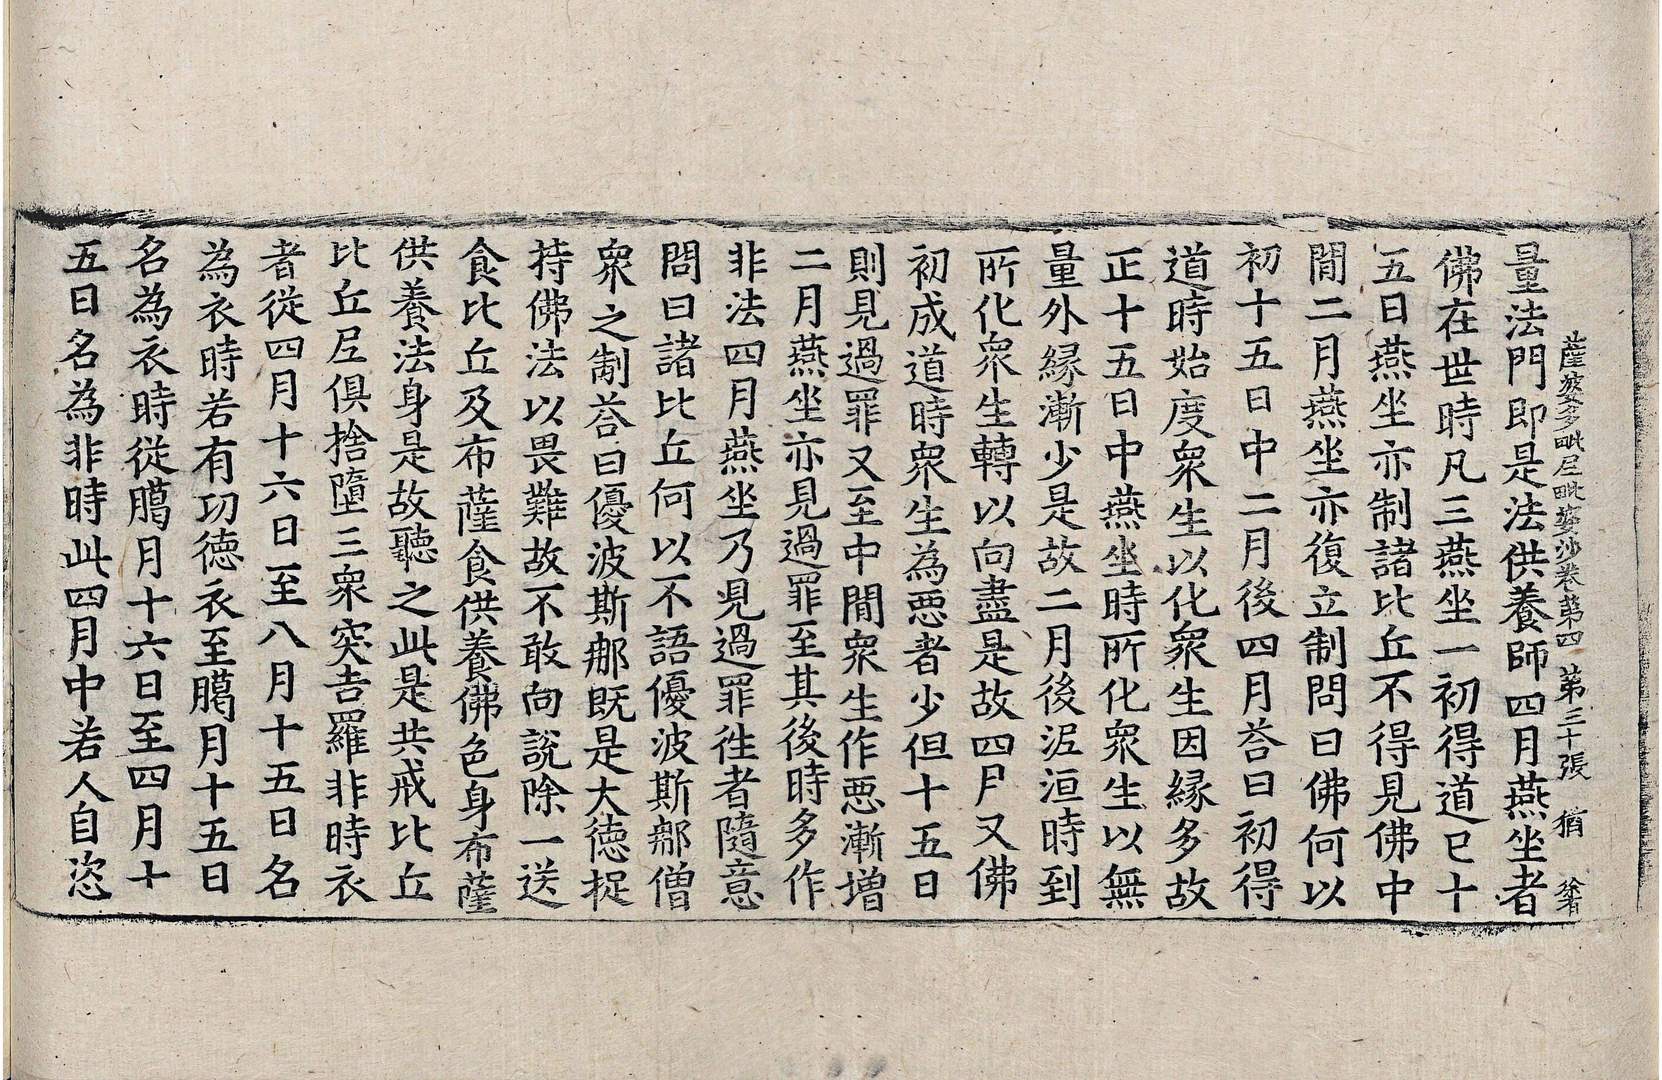 薩婆多毗尼毗婆沙卷第四 第三十張 猶
量法門即是法供養師四月燕坐者
佛在世時凡三燕坐一初得道已十
五日燕坐亦制諸比丘不得見佛中
閒二月燕坐亦復立制問曰佛何以
初十五日中二月後四月荅曰初得
道時始度衆生以化衆生因縁多故
正十五日中燕坐時所化衆生以無
量外縁漸少是故二月後泥洹時到
所化衆生轉以向盡是故四月又佛
初成道時衆生為惡者少但十五日
則見過罪又至中閒衆生作惡漸增
二月燕坐亦見過罪至其後時多作
非法四月燕坐乃見過罪徃者隨意
問曰諸比丘何以不語優波斯那僧
衆之制荅曰優波斯那既是大德捉
持佛法以畏難故不敢向說除一送
食比丘及布薩食供養佛色身布薩
供養法身是故聽之此是共戒比丘
比丘尼俱捨墮三衆突吉羅非時衣
者從四月十六日至八月十五日名
為衣時若有功德衣至臈月十五日
名為衣時從臈月十六日至四月十
五日名為非時此四月中若人自恣